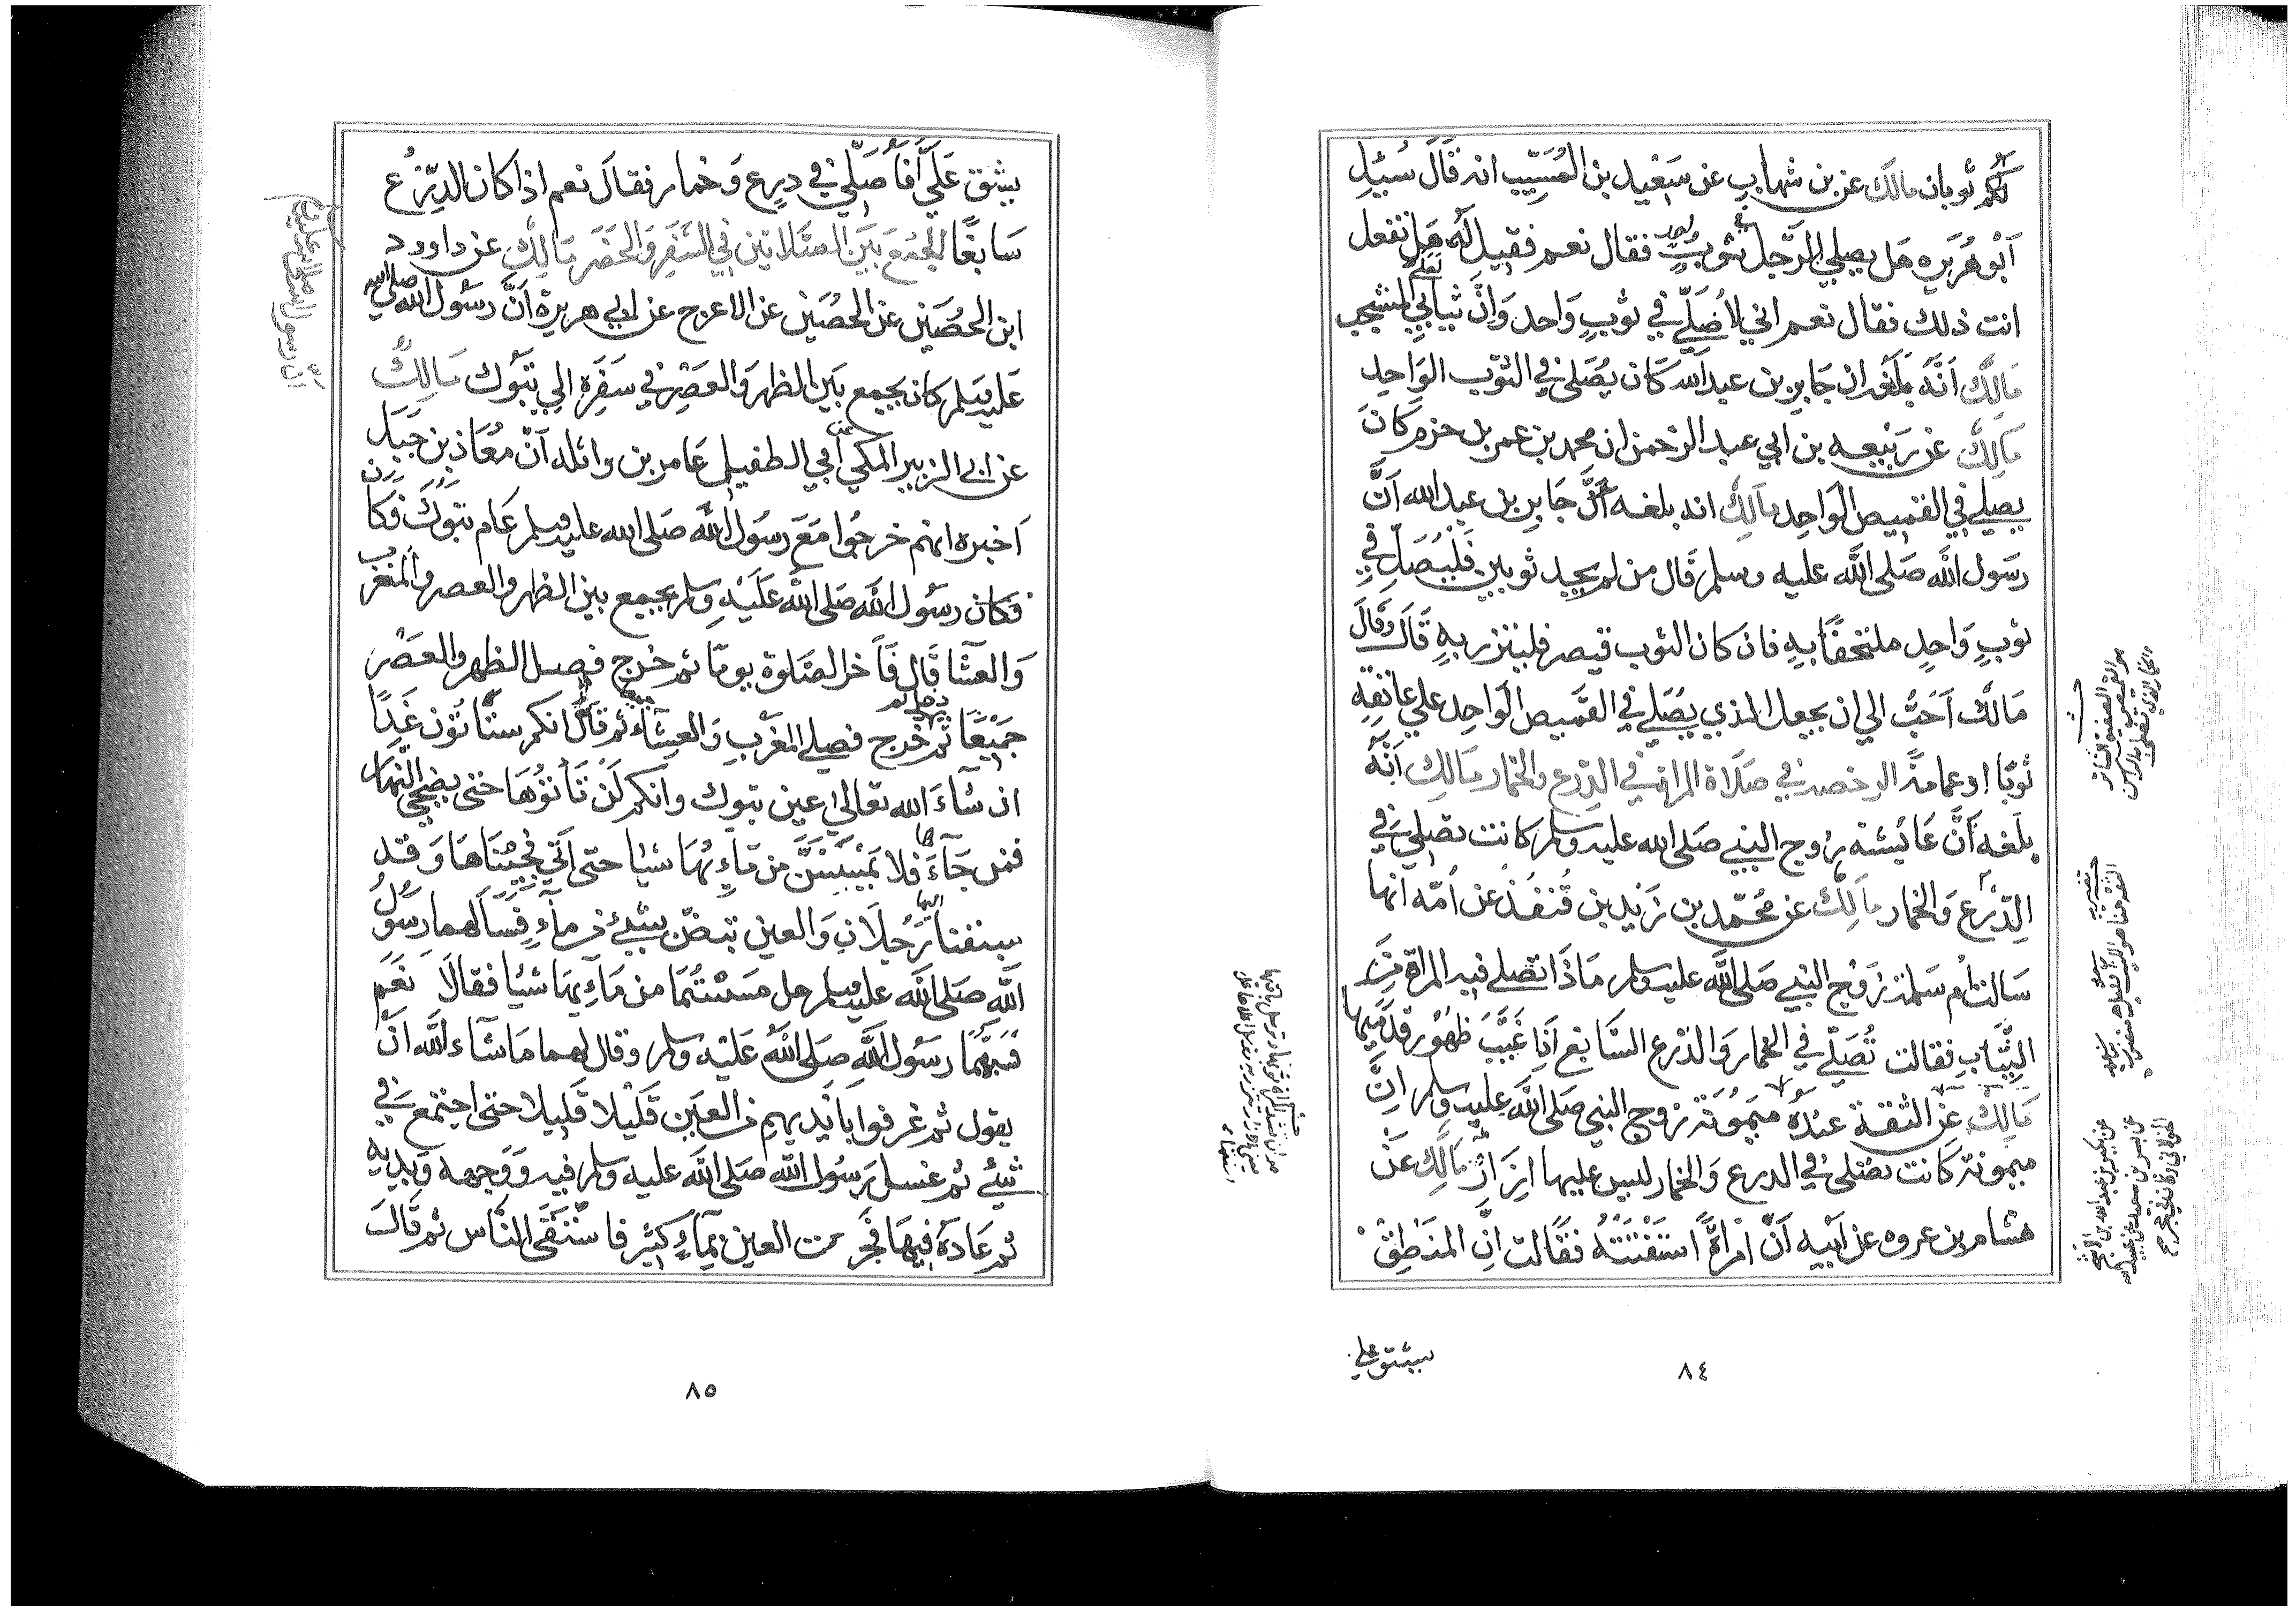 لكلكم ثوبان مالك عن بن شهاب عن سعيد بن المسيب انه قال سئيل
ابو هريره هل يصلي الرجل في ثوب واحد فقال نعم فقيل له هل تفعل
انت ذلك فقال نعم اني لاصلي في ثوب واحد وان ثيابي لعلى المشجب
مالك انه بلغه ان جابر بن عبد الله كان يصلى في الثوب الواحد
مالك عن ربيعه بن ابي عبد الرحمن ان محمد بن عمر بن حزم كان
يصلي في القميص الواحد مالك انه بلغه عن جابر بن عبد الله ان
رسول الله صلى الله عليه وسلم قال من لم يجد ثوبين فليصل في
ثوب واحد ملتحفا به فان كان الثوب قصير فليتزر به قال وقال
مالك احب الي ان يجعل الذي يصلي في القميص الواحد علي عاتقه
ثوبا او عمامة الرخصه في صلاة المراة في الدرع والخمار مالك انه
بلغه ان عايشه زوج النبي صلى الله عليه وسلم كانت تصلي في
الدرع والخمار مالك عن محمد بن زيد بن قنفذ عن امه انها
سالت ام سلمة زوج النبي صلى الله عليه وسلم ماذا تصلي فيه المراة من
الثياب فقالت تصلي في الخمار والدرع السابغ اذا غيب ظهور قدميها
مالك عن الثقة عنده ميمونة زوج النبي صلى الله عليه وسلم ان
ميمونة كانت تصلى في الدرع والخمار ليس عليها ازار مالك عن
هشام بن عروه عن ابيه ان امراة استفتته فقالت ان المنطق
يشق علي
٨٤
يشق علي أفأصلي في درع وخمار فقال نعم اذا كان الدرع
سابغا الجمع بين الصلاتين في السفر والحضر مالك عن داوود
ابن الحصين عن الحصين عن الاعرج عن ابي هريرة ان رسول الله صلى الله
عليه وسلم كان يجمع بين الظهر والعصر في سفره الي تبوك مالك
عن ابي الزبير المكي عن ابي الطفيل عامر بن واثله ان معاذ بن جبل
اخبره انهم خرجوا مع رسول الله صلى الله عليه وسلم عام تبوك فكا
فكان رسول الله صلى الله عليه وسلم يجمع بين الظهر والعصر والمغرب
والعشا قال فأخر الصلوة يوما ثم خرج فصل الظهر والعصر
جميعا ثم دخل ثم خرج فصلي المغرب والعشاء جميعا ثم قال انكم ستاتون غدا
ان شاء الله تعالي عين تبوك وانكم لن تأتوها حتى يضحي النهار
فمن جاءها فلا يمسن من مايها شيا حتى اتي فجيناها وقد
سبقنا اليها رجلان والعين تبض بشئ من ماء فسالهما رسول
الله صلى الله عليه وسلم هل مسستما من مايها شيا فقالا نعم
فسبهما رسول الله صلى الله عليه وسلم وقال لهما ما شاء الله ان
يقول ثم غرفوا بايديهم من العين قليلا قليلا حتى اجتمع في
شئ ثم غسل رسول الله صلى الله عليه وسلم فيه وجهه ويديه
ثم عاده فيها فجرت العين بماء كثير فاستقى الناس ثم قال
٨٥